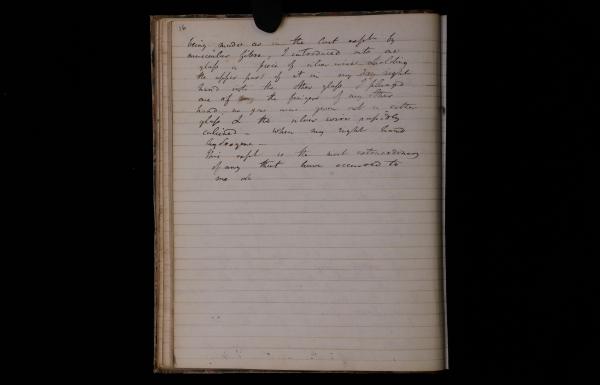 16
being made as in the last expt by
muscular fibre, I introduced into one
glass a piece of silver wire & holding
the upper part of it in my right
hand into the other glass I plunged
one of the fingers of my other
hand, no gas was given out in either
glass & the silver wire rapidly
when my right hand
hydrogene —
This expt is the most extraordinary
of any that have occurred to
me